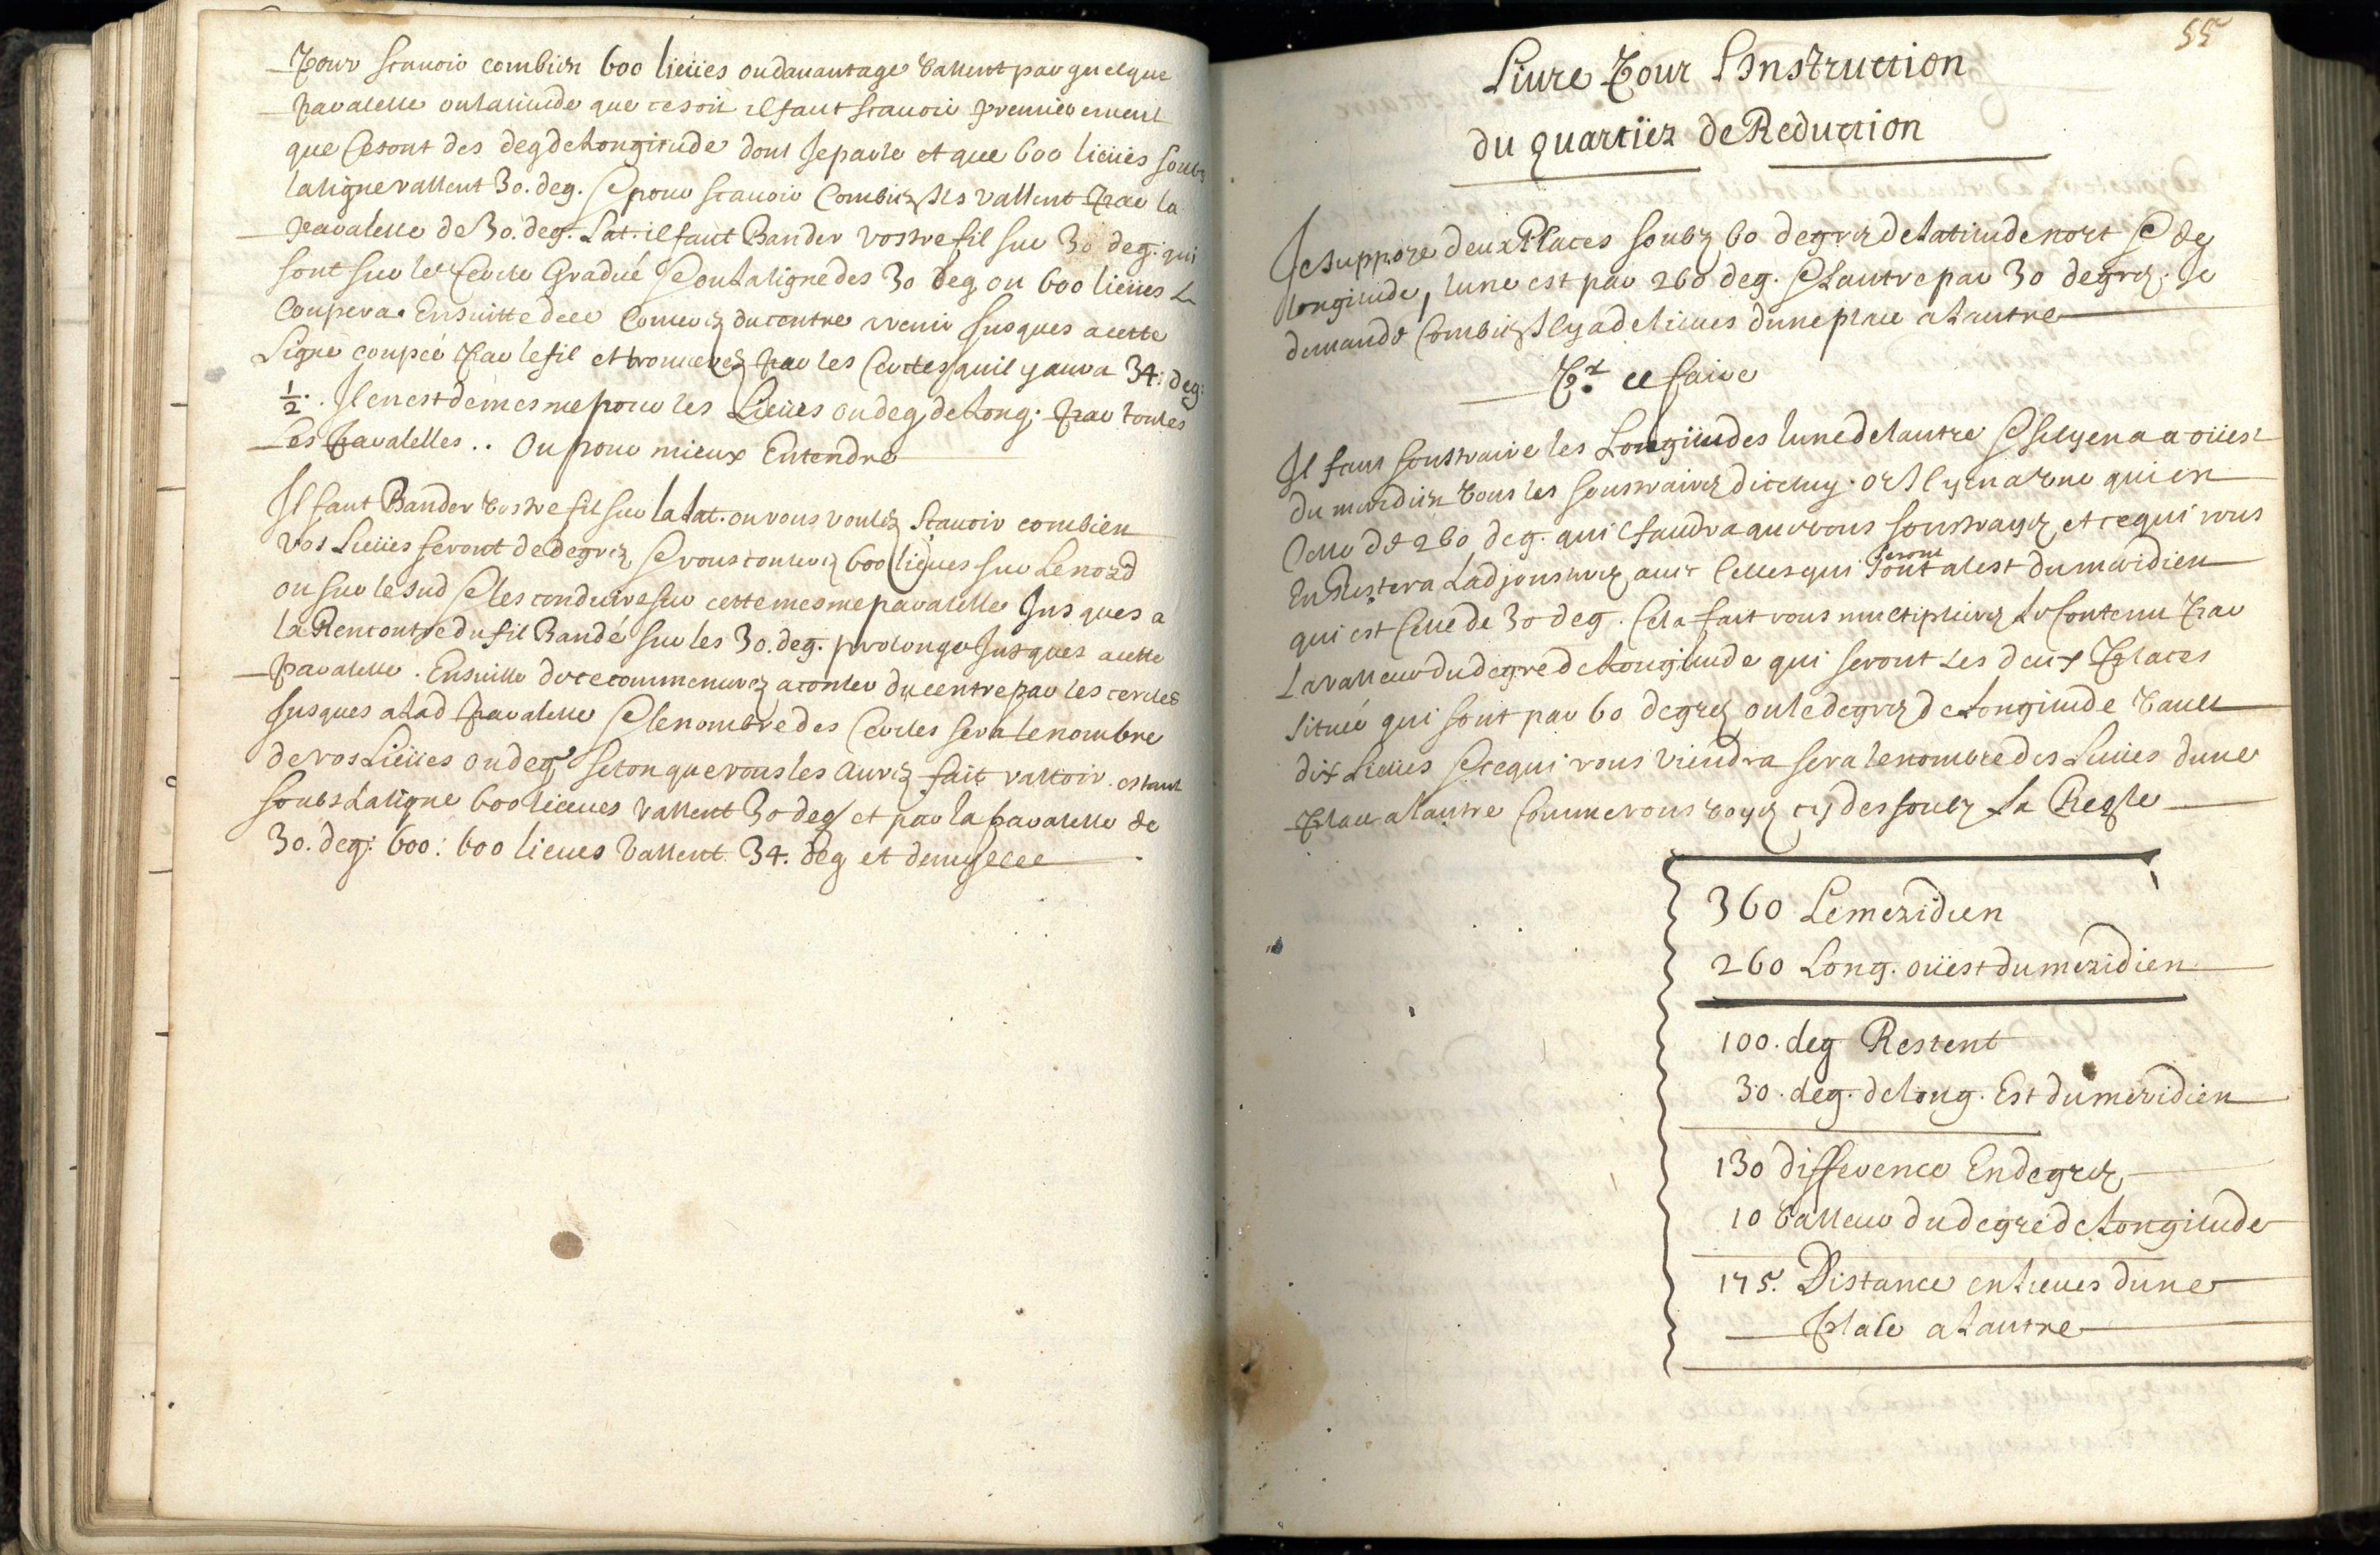 Pour scauoir combien 600 lieües ou dauantage vallent par quelque
paralelle ou latitude que ce soit il faut scauoir premierement
que ce sont des deg de Longitude dont Je parle et que 600 lieües soubs
la ligne vallent 30. deg. Et pour scauoir Combien Ils vallent Par la
paralelle de 30. deg. Lat. il faut Bander vostre fil sur 30 deg. qui
sont sur le Cercle Gradué Et ou La ligne des 30 deg ou 600 lieües Le
Coupera. Ensuitte de ce Conterez du centre a venir Jusques a cette
Ligne coupée Par le fil et trouuerez Par les Cercles quil y aura 34: deg:
1/2. Il en est de mesme pour les Lieües ou deg de Long. Par toutes
Les Paralelles.. Ou pour mieux Entendre
Il faut Bander vostre fil sur la Lat. ou vous voulez Scauoir combien
vos Lieües feront de degrez Et vous conterez 600 lieües sur Le nord
ou sur le sud Et les conduire sur cette mesme paralelle Jusques a
la Rencontre du fil Bandé sur les 30. deg. prolongé Jusques a cette
paralelle. Ensuitte de ce commencerez a conter du centre par les cercles
Jusques a Lad Paralelle Et le nombre des Cercles sera le nombre
de vos Lieües ou deg Selon que vous les Aurez fait valloir. estant
soubs La ligne 600 lieues vallent 30 deg et par la paralelle de
30. deg: 600: 600 lieues vallent 34. deg et demy
55
Liure Pour L'Instruction
du quartier de Reduction
Je suppoze deux Places soubz 60 degrez de Latitude nort Et de
longitude, lune est par 260 deg. Et Lautre par 30 degrez. Je
demande Combien Il y a de lieues dune place a Lautre
Pr ce faire
Il faut soustraire les Longitudes lune de lautre Et sil y en a a oüest
du meridien vous les soustrairez diceluy. or Il y en a une qui est
Celle de 260 deg. quil faudra que vous soustrayez et ce qui vous
En Restera L'adjousterez auec Celles qui Sont a lest du meridien
seront
qui est Celle de 30 deg. Cela fait vous multiplierez Le Contenu Par
La valleur du degré de Longitude qui seront Les deux Places
située qui sont par 60 degrez ou le degrez de Longitude vault
dix Lieues Et ce qui vous viendra sera le nombre des Lieues dune
Place a Lautre Comme vous voyez cy dessoubz La Regle
360 Le meridien
260 Long. oüest du meridien
100. deg Restent
30. deg. de long. Est du meridien
130 difference En degrez
10 Valleur du degré de Longitude
175. Distance en lieues dune
Place a Lautre